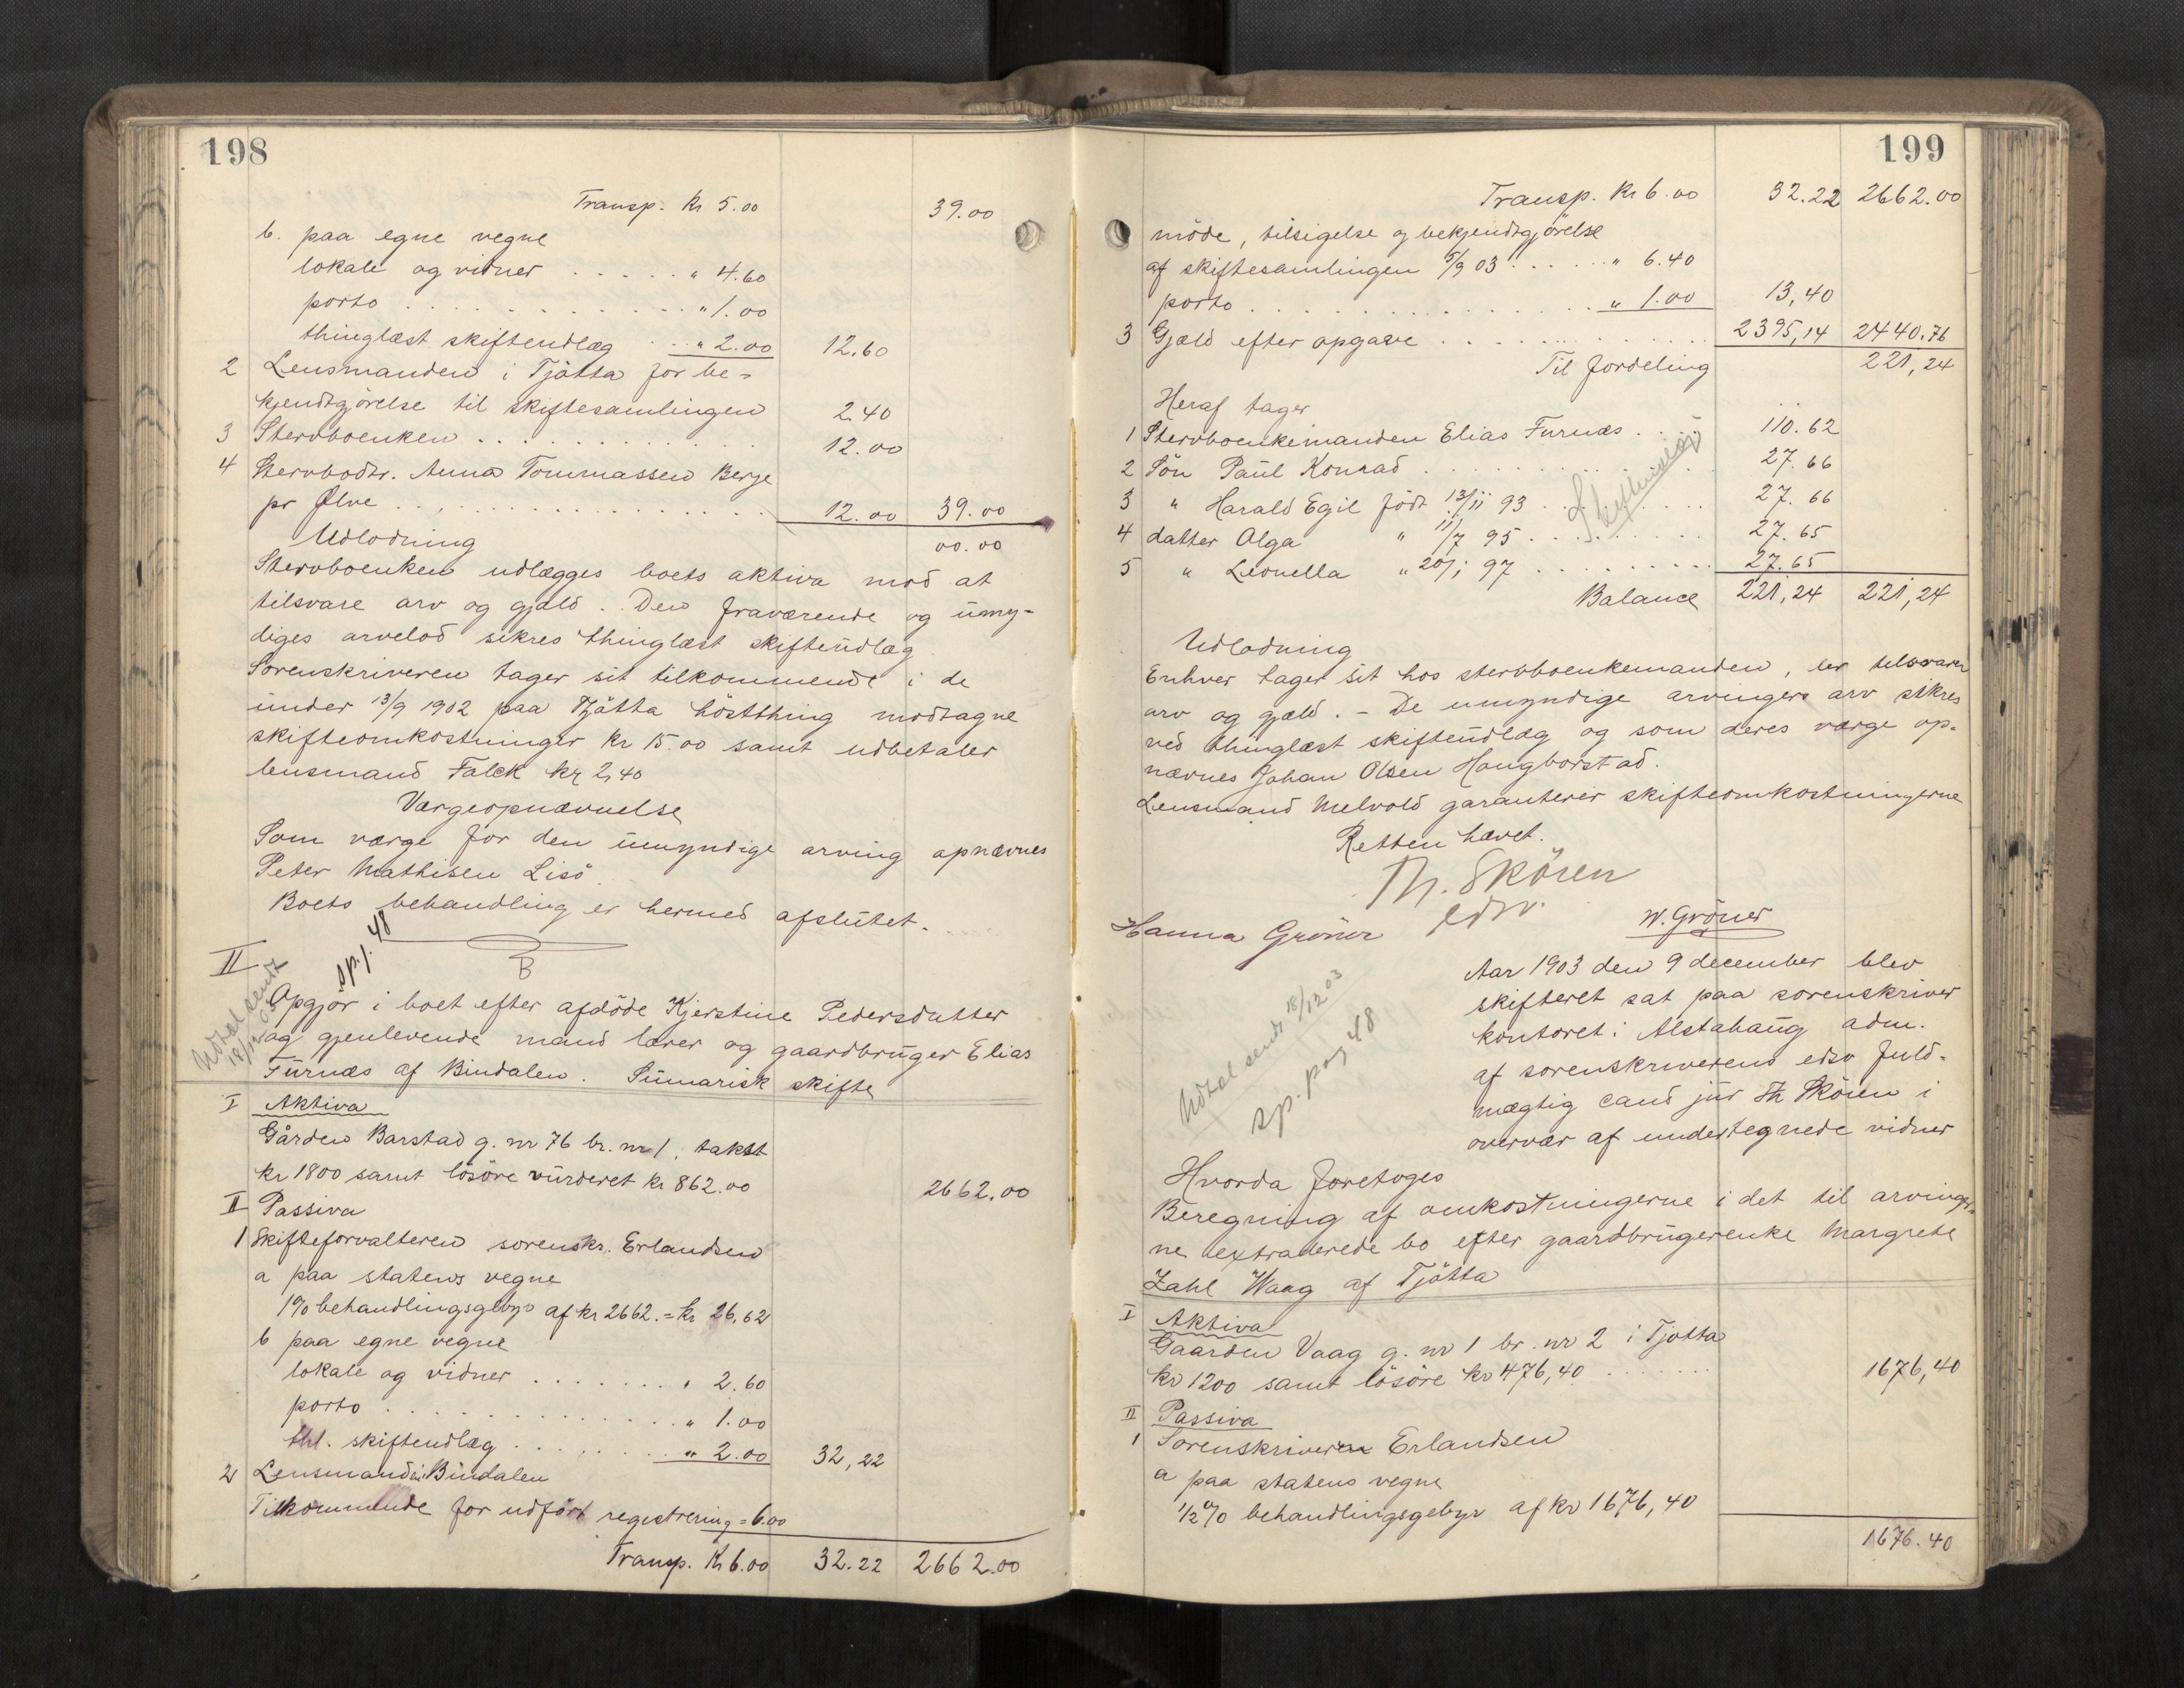 198
Transp. Kr 5.00 39.00
b. paa egne vegne
lokale og vidner . . . . . " 4.60
porto . . . . . . . . . . . . . " 1.00
thinglæst skifteudlæg . . . " 2.00 12.60
2 Lensmanden i Tjötta for be-
kjendtgjörelse til skiftesamlingen 2.40
3 Stervboenken . . . . . . . . . . . . 12.00
4 Stervbodtr. Anna Tommassen Berge
pr Ølve . . . . . . . . . . . . . . . . 12.00 39.00
Udlodning 00.00
Stervboenken udlægges boets aktiva mod at
tilsvare arv og gjæld. Den fraværende og umy-
diges arvelod sikres thinglæst skifteudlæg.
Sorenskriveren tager sit tilkommende i de
under 13/9 1902 paa Tjötta höstthing modtagne
skifteomkostninger kr 15.00 samt udbetaler
lensmand Falck kr 2,40
Værgeopnævnelse
Som værge for den umyndige arving opnævnes
Peter Mathisen Lisö.
Boets behandling er hermed afsluttet.
sp. j. 48
B
II
Udtal sendt
18/12 03
Opgjör i boet efter afdöde Kjerstine Pedersdatter
og gjenlevende mand lærer og gaardbruger Elias
Furnæs af Bindalen. Sumarisk skifte
I Aktiva
Gården Barstad g. nr 76 br. nr 1, takst
kr 1800 samt lösöre vurderet kr 862.00 2662.00
II Passiva
1 Skifteforvalteren sorenskr. Erlandsen
a paa statens vegne
1% behandlingsgebyr af kr 2662. = kr 26,62
b paa egne vegne
lokale og vidner . . . . . . . " 2.60
porto . . . . . . . . . . . . . . " 1.00
thl. skifteudlæg . . . . . . . . " 2.00 32,22
2 Lensmand i Bindalen
Tilkommende for udfört registrering = 6.00
Transp. Kr 6.00 32.22 2662.00
199
Transp. Kr 6.00 32.22 2662.00
möde, tilsigelse og bekjendtgjörelse
af skiftesamlingen 5/9 03 . . . . . " 6.40
porto . . . . . . . . . . . . . . . . " 1.00 13,40
3 Gjæld efter opgave . . . . . . . . . . . 2395,14 2440.76
Til fordeling 221,24
Heraf tager
1 Stervboenkemanden Elias Furnæs . . . . 110.62
2 Sön Paul Konrad . . . . . . . . . . . . 27.66
3 " Harald Egil födt 13/11 93 . . . . . . . 27.66
4 datter Olga " 11/7 95 . . . . . . . . . 27.65
5 " Leonella " 20/1 97 . . . . . . . . . 27.65
Skifteudlæg
Balance 221,24 221,24
Udlodning
Enhver tager sit hos stervboenkemanden, der tilsvarer
arv og gæld. - De umyndige arvingers arv sikres
ved thinglæst skifteudlæg og som deres værge op-
nævnes Johan Olsen Hongborstad.
Lensmand Melvold garanterer skifteomkostningerne
Retten hævet.
Th. Skören
edsv.
Hanna Gröner W. Gröner
Udtal sendt 18/12 03
sp. pag 48
Aar 1903 den 9 december blev
skifteret sat paa sorenskriver
kontoret i Alstahaug adm.
af sorenskriverens edsv fuld-
mægtig cand jur Th Skören i
overvær af undertegnede vidner
Hvorda foretoges
Beregning af omkostningerne i det til arvinger-
ne extraderede bo efter gaardbrugerenke Margrete
Zahl Waag af Tjötta
I Aktiva
Gaarden Vaag g. nr 1 br. nr 2 i Tjotta
kr 1200 samt lösöre kr 476,40 . . . . . . 1676,40
II Passiva
1 Sorenskriveren Erlandsen
a paa statens vegne
1/2 % behandlingsgebyr af kr 1676,40
1676.40